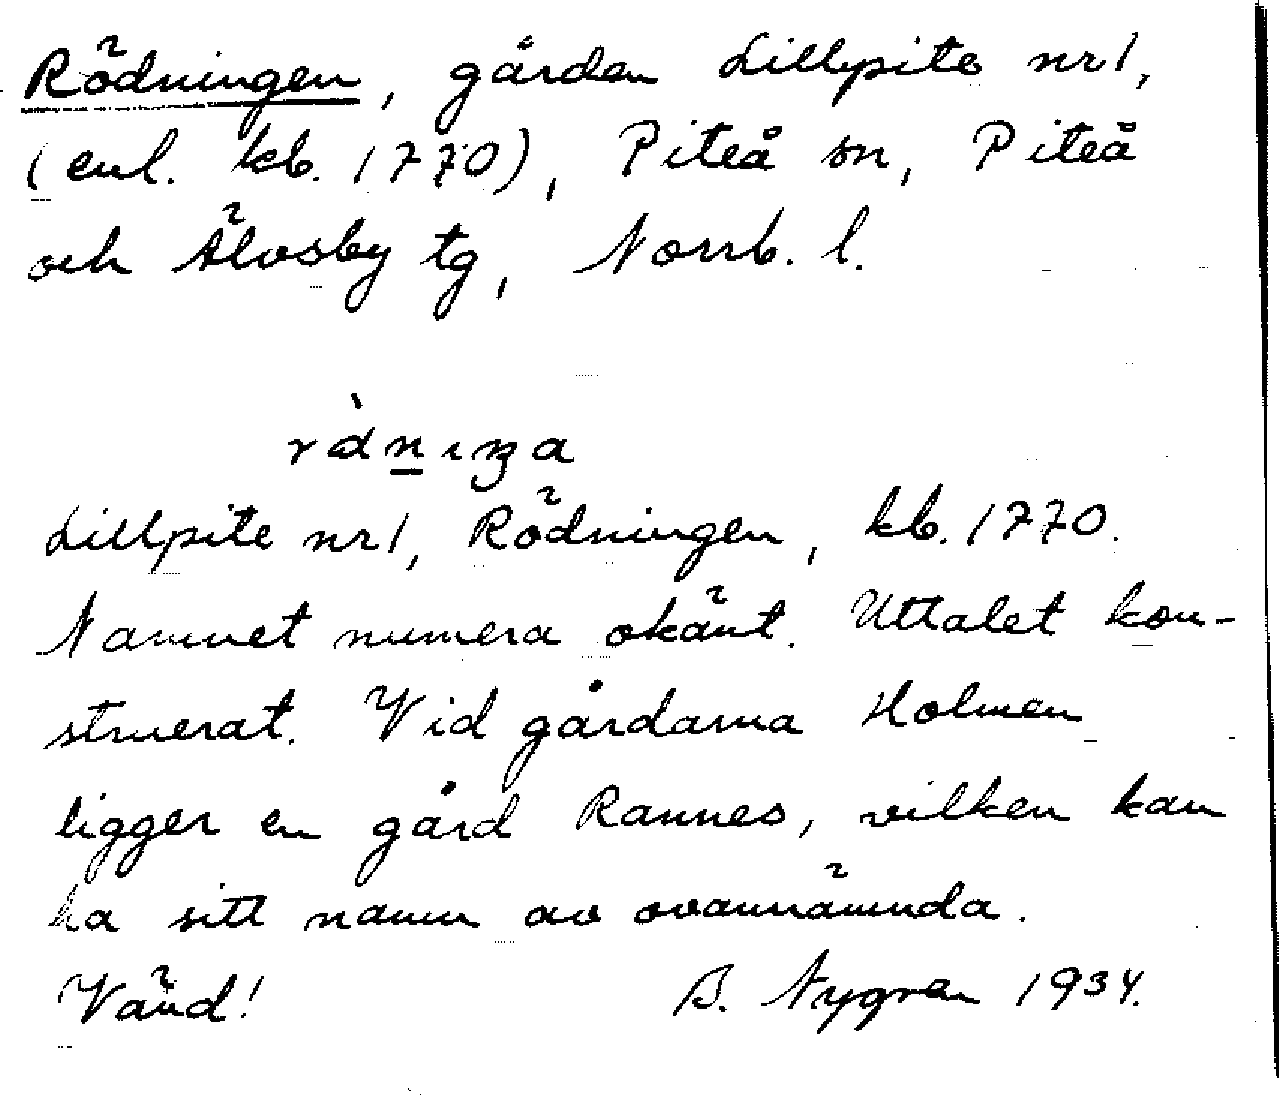 Rödningen, gården Lillpite nr 1,
(enl. kb. 1770), Piteå sn, Piteå
och Älvsby tg, Norrb. l.
Lillpite nr 1, Rödningen, kb. 1770.
Namnet numera okänt. Uttalet kon-
struerat. Vid gårdarna Holmen
ligger en gård Rannes, vilken kan
ha sitt namn av ovannämnda.
Vänd! B. Nygren 1934.